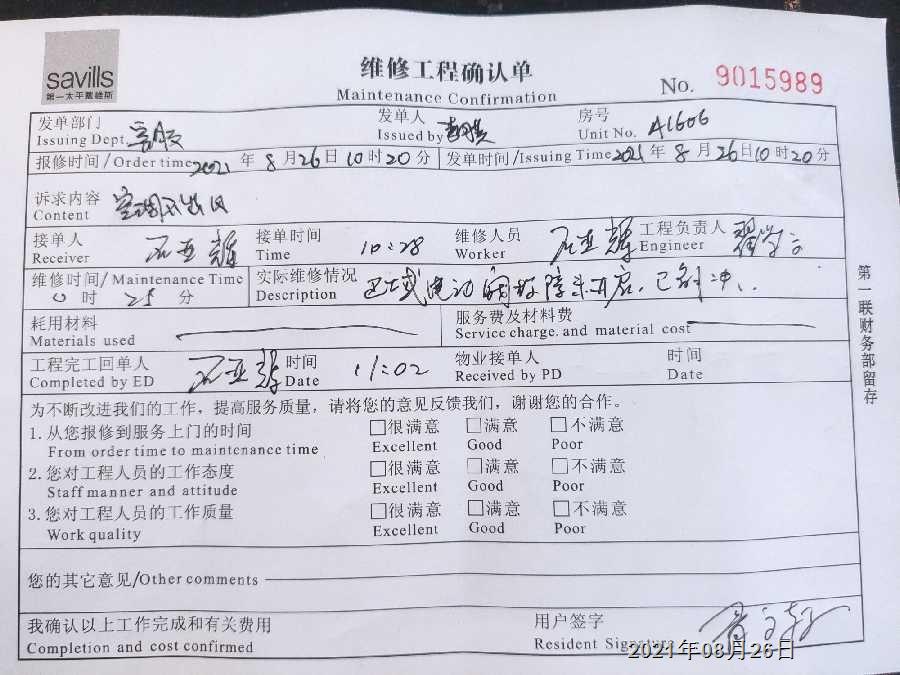 savills
第一太平戴维斯
维修工程确认单
Maintenance Confirmation
No. 9015989
发单部门
Issuing Dept. 客服
发单人
Issued by
房号
Unit No. A1606
报修时间/Order time 2021年8月26日10时20分
发单时间/Issuing Time 2021年8月26日10时20分
诉求内容
Content 空调不出风
接单人
Receiver 石亚辉
接单时间
Time 10:28
维修人员
Worker 石亚辉
工程负责人
Engineer
维修时间/Maintenance Time
0时25分
实际维修情况
Description 电动阀故障未开启,已
耗用材料
Materials used
服务费及材料费
Service charge. and material cost
工程完工回单人
Completed by ED 石亚辉
时间
Date 11:02
物业接单人
Received by PD
时间
Date
为不断改进我们的工作，提高服务质量，请将您的意见反馈我们，谢谢您的合作。
1.从您报修到服务上门的时间 □很满意 □满意 □不满意
From order time to maintenance time Excellent Good Poor
2.您对工程人员的工作态度 □很满意 □满意 □不满意
Staff manner and attitude Excellent Good Poor
3.您对工程人员的工作质量 □很满意 □满意 □不满意
Work quality Excellent Good Poor
您的其它意见/Other comments
我确认以上工作完成和有关费用
Completion and cost confirmed
用户签字
Resident Signature
第一联财务部留存
2021年08月26日